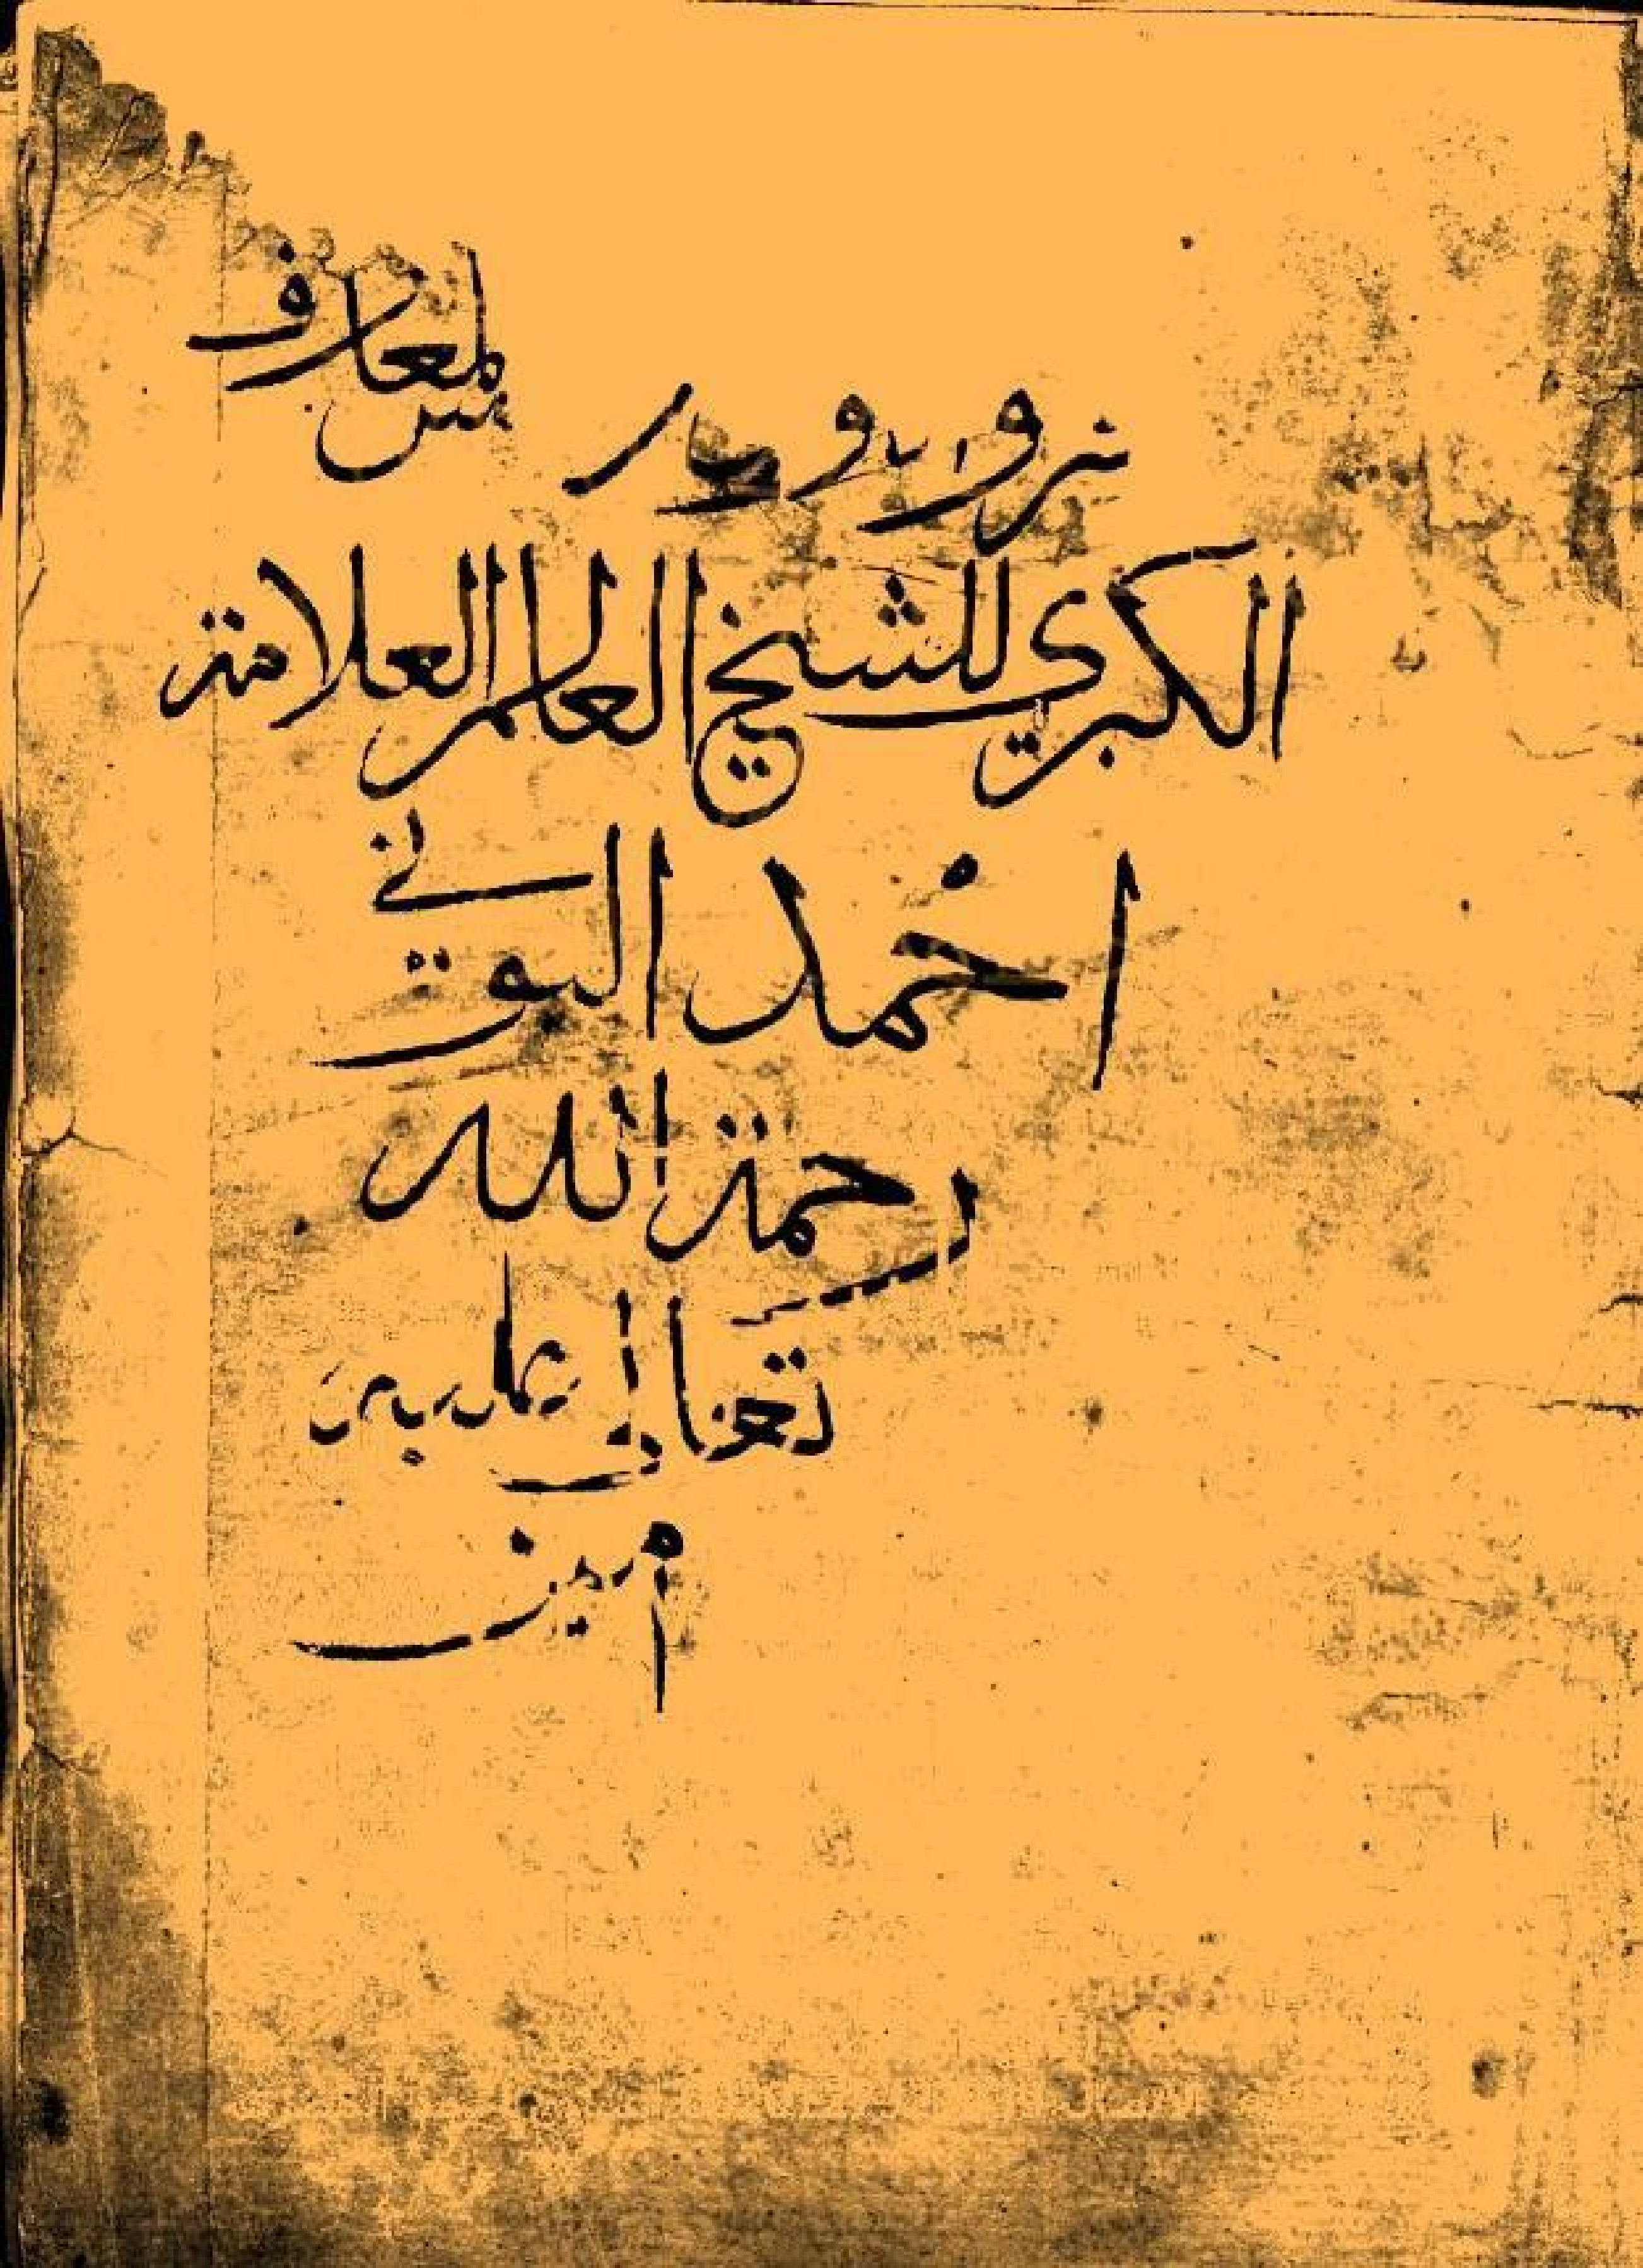 المعارف
الكبري للشيخ العالم العلامة
احمد البوني
رحمة الله
تعالى عليه
امين